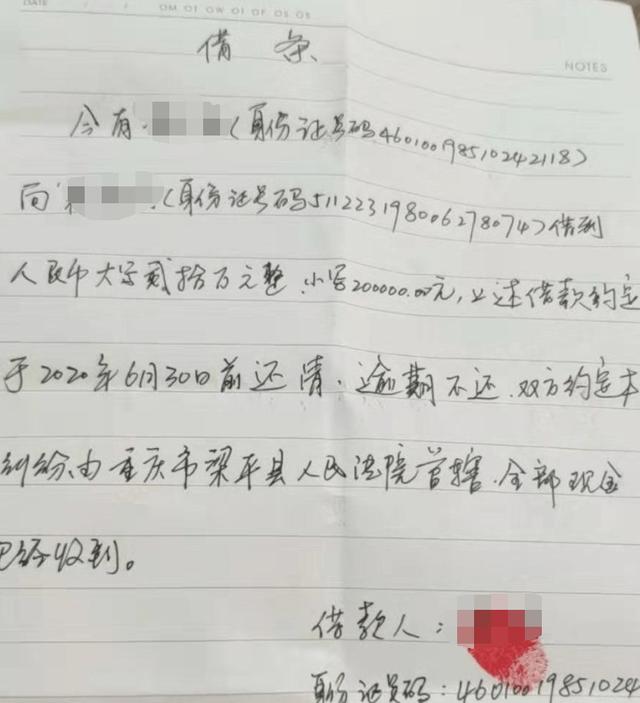 DATE / /
借条
今有 (身份证号码460100198510242118)
向 (身份证号码511223198006278074)借到
人民币大写贰拾万元整.小写200000.00元,上述借款约定
于2020年6月30日前还清.逾期不还.双方约定本
纠纷由重庆市梁平县人民法院管辖.全部现金
已经收到。
借款人:
身份证号码:46010019851024
NOTES